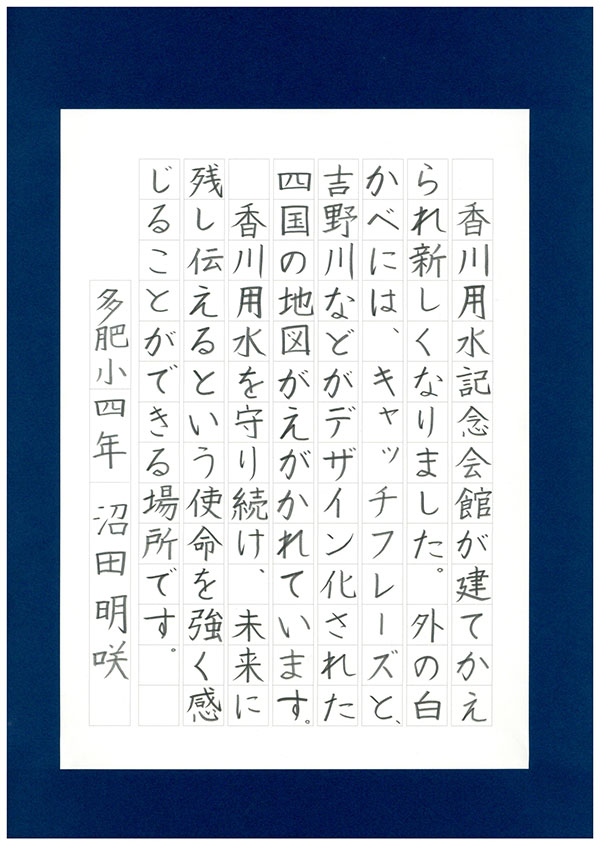 香川用水記念会館が建てかえ
られ新しくなりました。外の白
かべには、キャッチフレーズと、
吉野川などがデザイン化された
四国の地図がえがかれています。
　香川用水を守り続け、未来に
残し伝えるという使命を強く感
じることができる場所です。
多肥小四年　沼田明咲